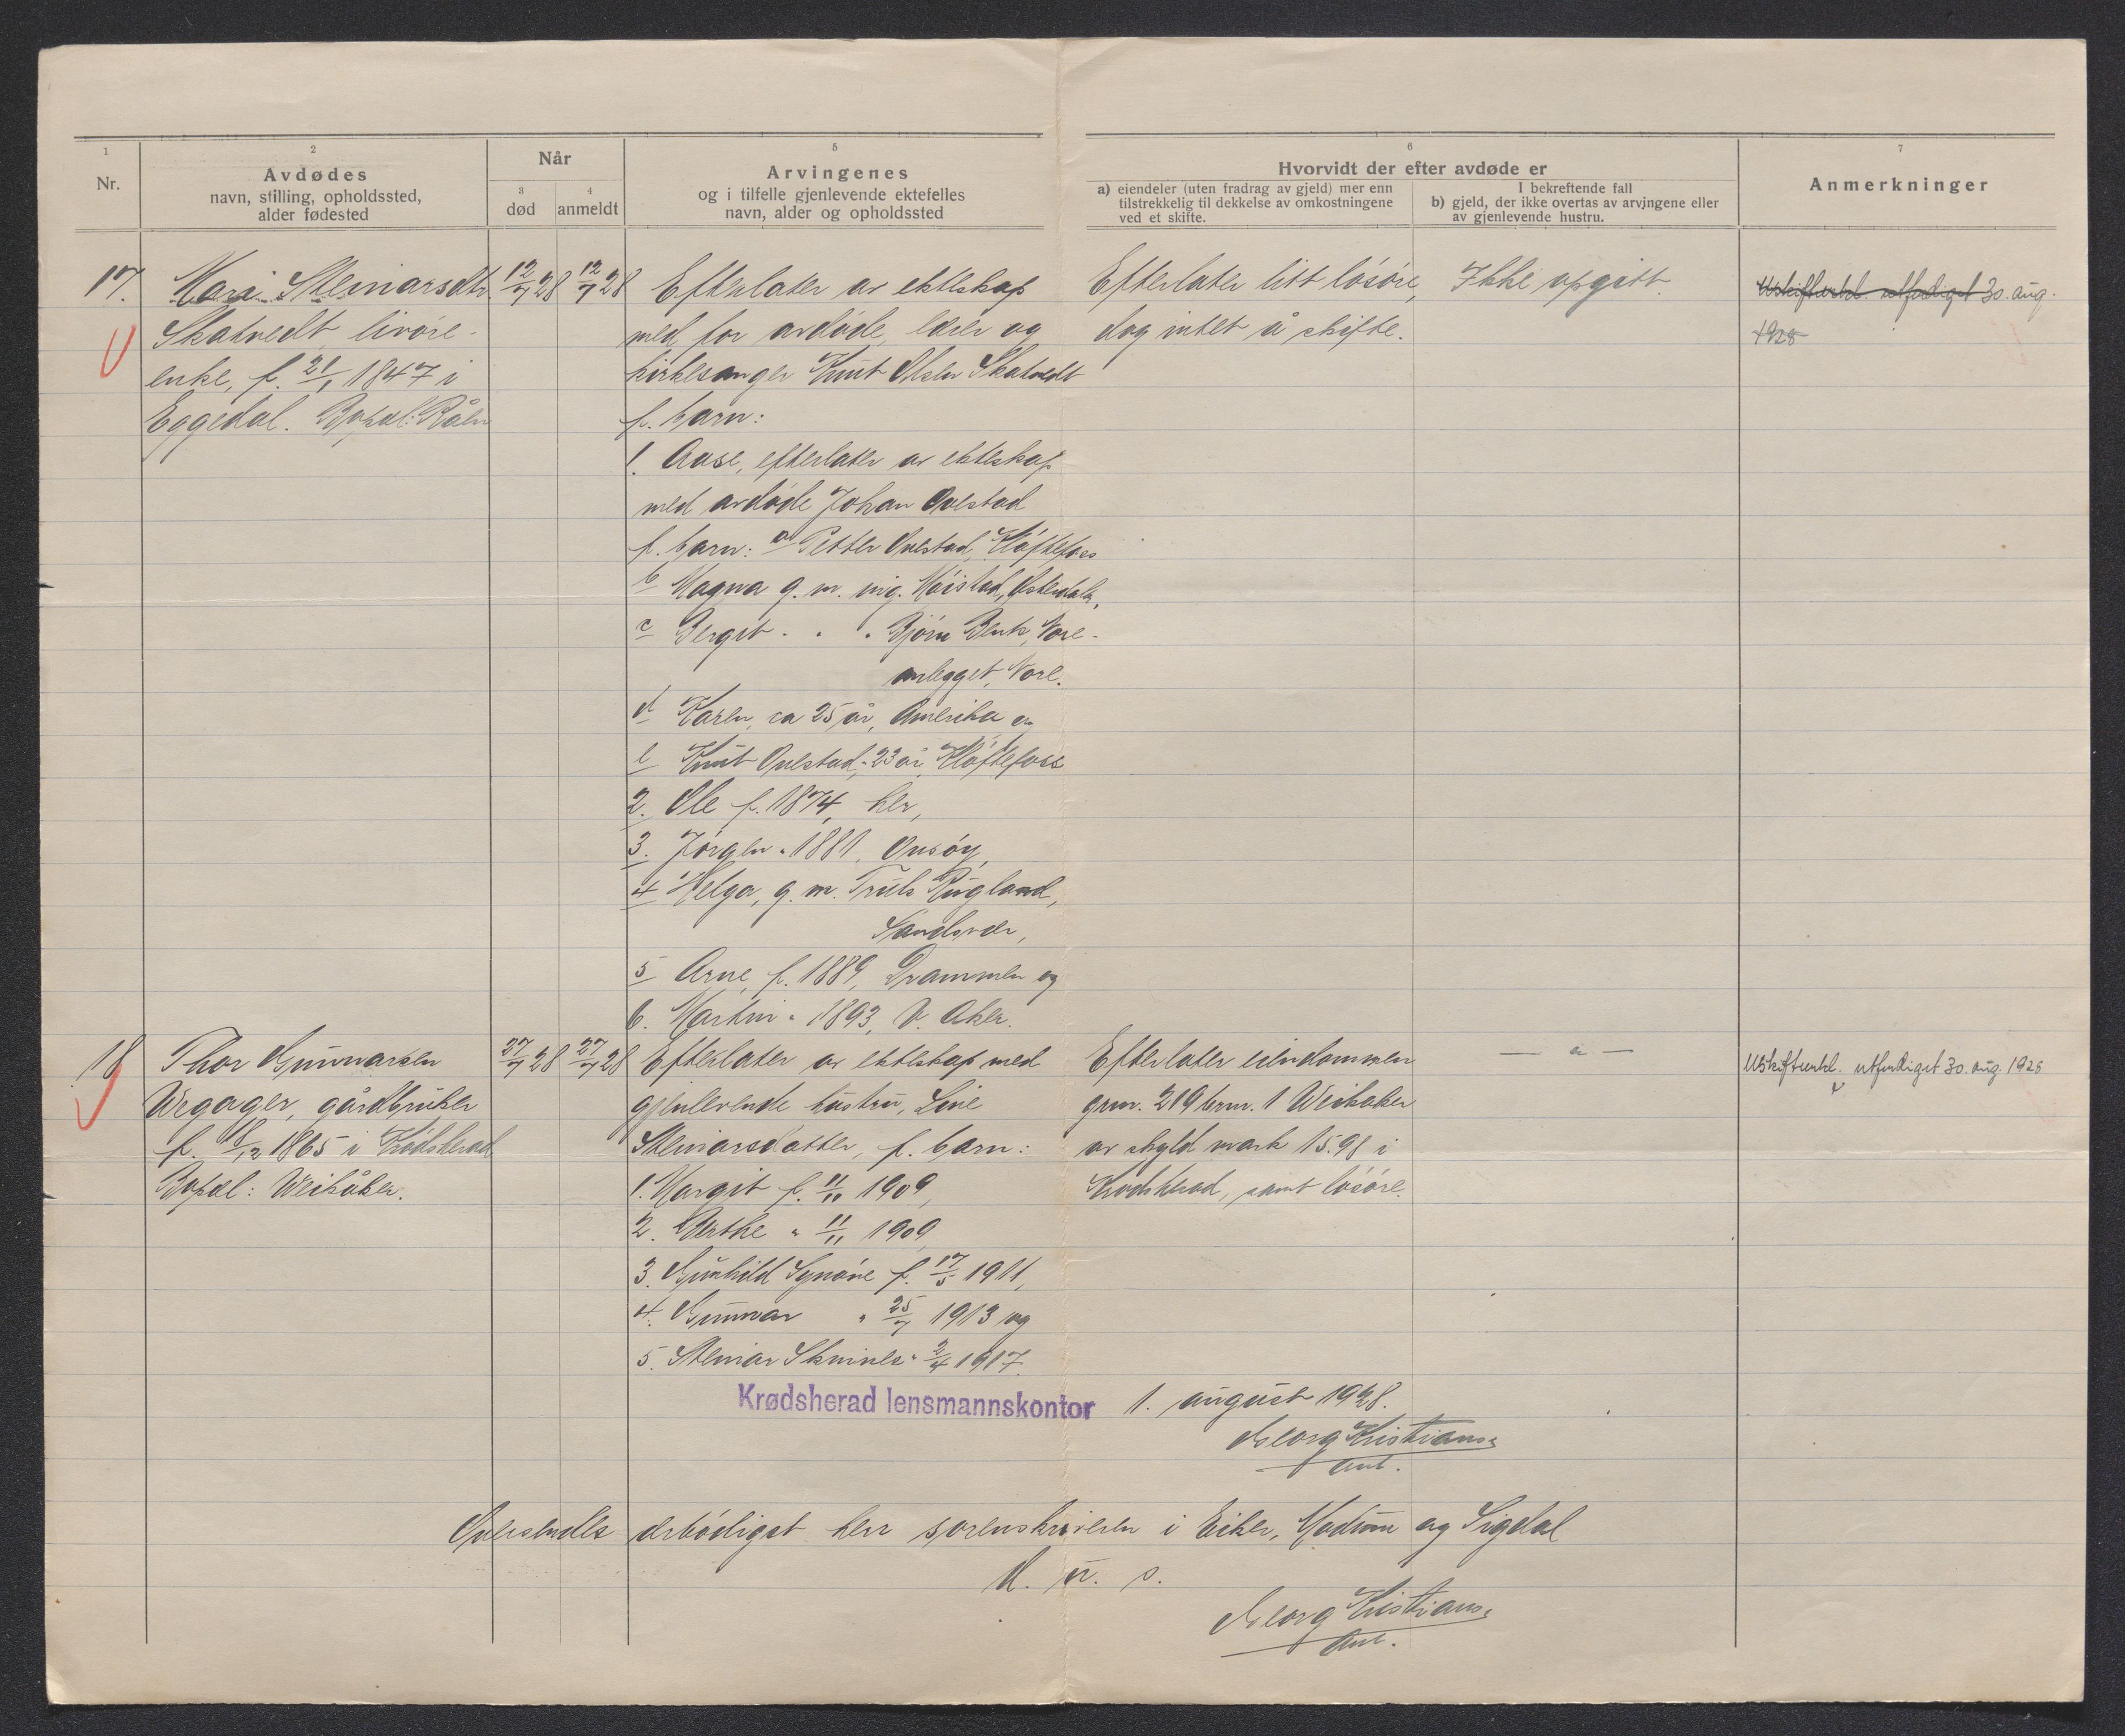 1
Nr.
2
Avdødes
navn, stilling, opholdssted,
alder fødested
Når
3
død
4
anmeldt
5
Arvingenes
og i tilfelle gjenlevende ektefelles
navn, alder og opholdssted
6
Hvorvidt der efter avdøde er
a) eiendeler (uten fradrag av gjeld) mer enn
tilstrekkelig til dekkelse av omkostningene
ved et skifte.
I bekreftende fall
b) gjeld, der ikke overtas av arvingene eller
av gjenlevende hustru.
7
Anmerkninger
17.
Mari Steinarsdtr.
Skatvedt, livøre-
enke, f. 21/1 1847 i
Eggedal. Bopæl: Råen
12/7 28
12/7 28
Efterlater av ekteskap
med før avdøde, lærer og
kirkesanger Knut Olsen Skatvedt
f. barn:
1. Aase, efterlater av ekteskap
med avdøde Johan Ovestad
f. barn: a Petter Ovestad, Kløftefoss
b Magna g. m. ing. Møistad, Østerdalen,
c Bergit " " Bjørn Blenk, Nore-
anlegget, Nore.
d Karen, ca 25 år, Amerika og
e Knut Ovestad, 23 år, Kløftefoss
2. Ole f. 1874, her,
3. Jørgen " 1881, Onsøy,
4 Helga, g. m. Truls Rugland,
Sandsvær,
5 Arne, f. 1889, Drammen og
6. Martin " 1893, V. Aker.
Efterlater litt løsøre,
dog intet å skifte.
Ikke opgitt.
Uskifteatt. utferdiget 30. aug.
1928
18
Thor Gunnarsen
Vegager, gårdbruker
f. 18/12 1865 i Krødsherad
Bopæl: Veikåker.
27/7 28
27/7 28
Efterlater av ekteskap med
gjenlevende hustru, Live
Steinarsdatter, f. barn:
1. Margit f. 11/11 1909,
2. Berthe " 11/11 1909,
3. Gunhild Synøve f. 17/5 1911,
4. Gunnar " 25/7 1913 og
5. Steinar " 2/4 1917.
Efterlater eiendommen
grnr. 219 brnr. 1 Veikåker
av skyld mark 15.98 i
Krødsherad, samt løsøre.
— " —
Uskifteatt. utferdiget 30. aug. 1928
Krødsherad lensmannskontor 1. august 1928.
Georg Kristians.
Aut.
Oversendes ærbødigst herr sorenskriveren i Eiker, Modum og Sigdal
D. u. s.
Georg Kristians.
Aut.